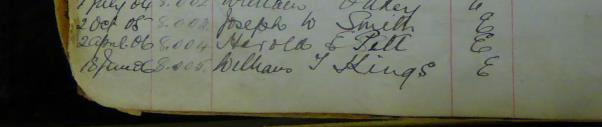 1 July 04 8.002 William Oakey
2 Oct 05 8.003 Joseph W Smith E
2 April 06 8.004 Harold E Pitt E
18 June 06 8.005 William T Kings E